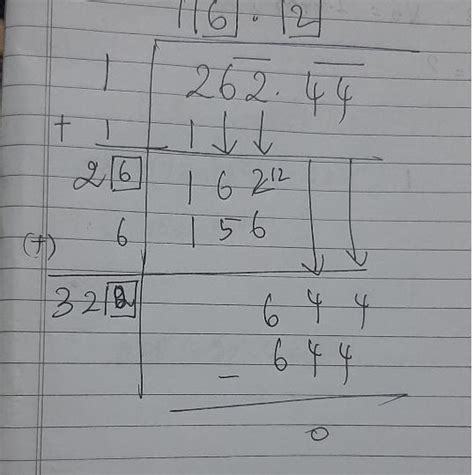 1 6 . 2
1 262.44
+ 1 1
2 6 1 6 2 12
(+) 6 1 5 6
32 2 6 4 4
- 6 4 4
0